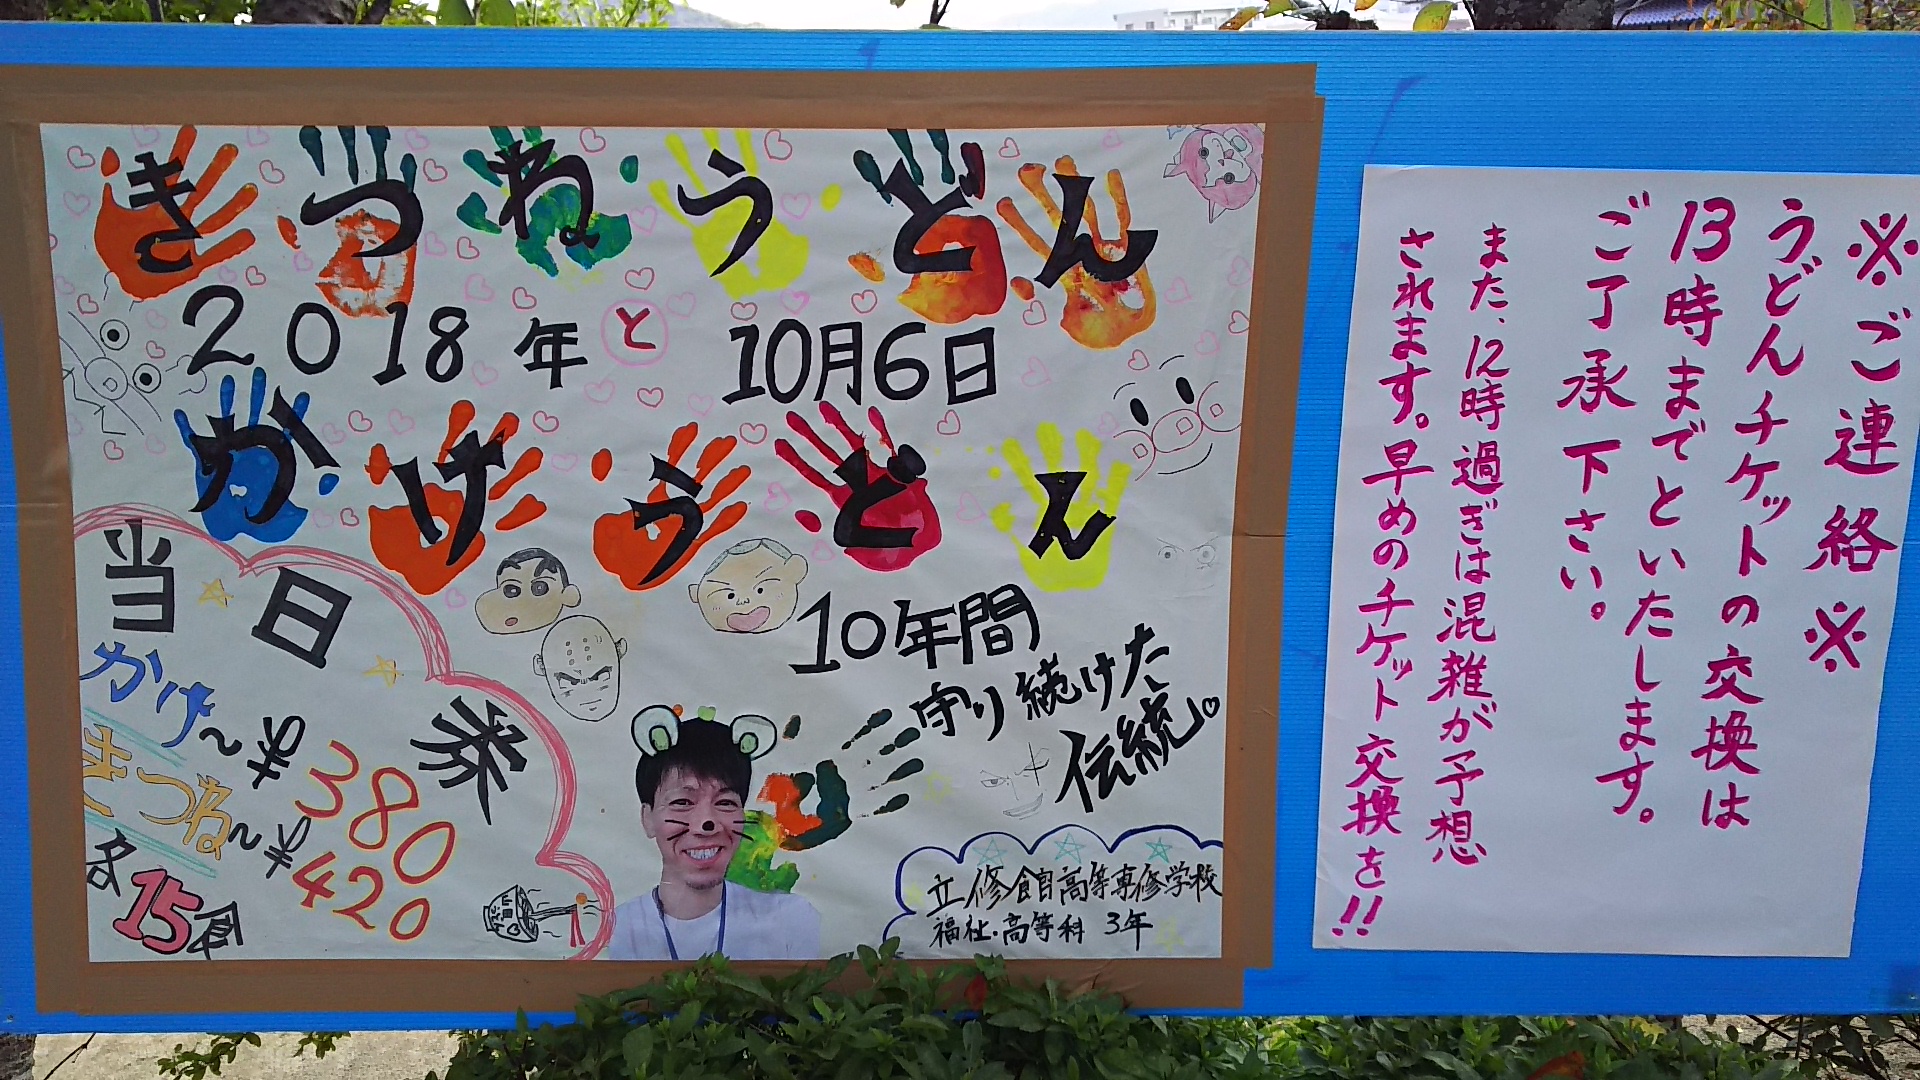 きつねうどん
2018年と10月6日
かけうどん
10年間
守り続けた
伝統。
当日券
かけ~¥380
きつね~¥420
各15食
立修館高等専修学校
福祉・高等科 3年
※ご連絡※
うどんチケットの交換は
13時までといたします。
ご了承下さい。
また、12時過ぎは混雑が予想
されます。早めのチケット交換を!!